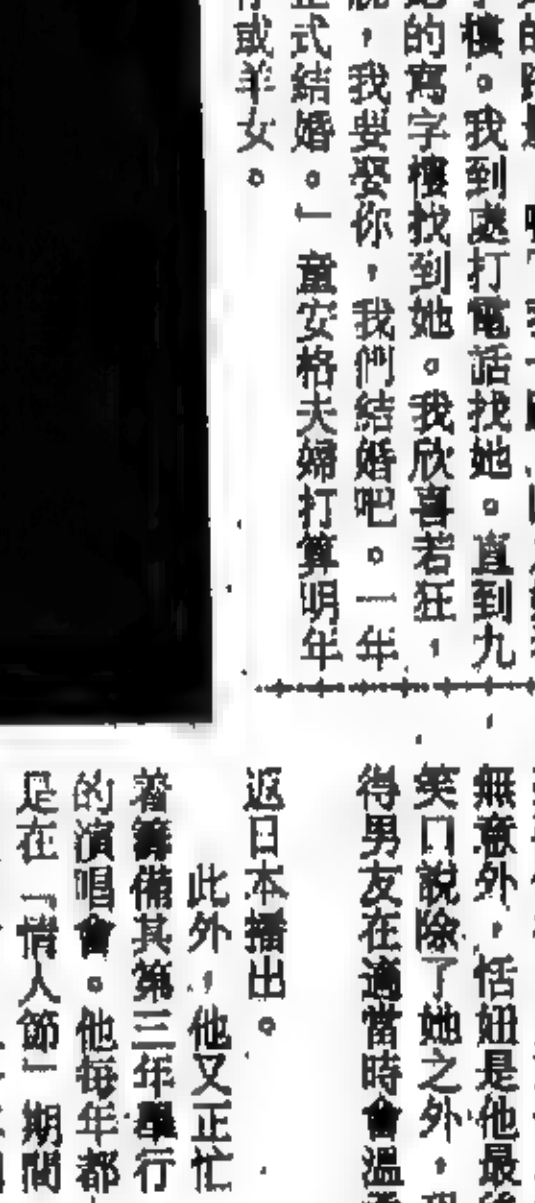 樓。我到處打電話找她。直到九
的寫字樓找到她。我欣喜若狂，
，我要娶你，我們結婚吧。一年
正式結婚。」童安格夫婦打算明年
或羊女。
無意外，恬妞是他最
笑口說除了她之外，
得男友在適當時會溫
返日本播出。
此外，他又正忙
着籌備其第三年舉行
的演唱會。他每年都
是在「情人節」期間